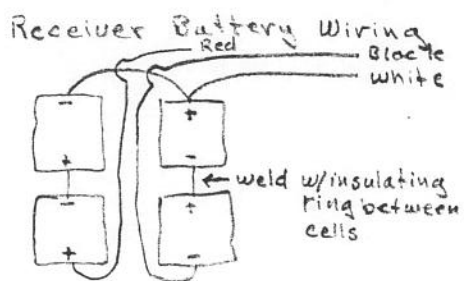 Receiver Battery Wiring
Red
Black
White
- +
+ -
weld w/insulating
ring between
cells
- +
+ -